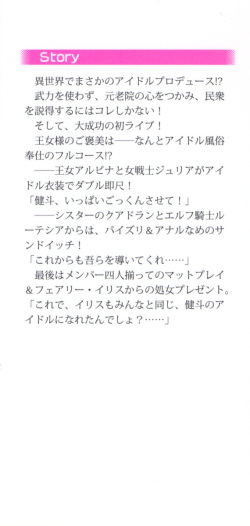 Story
異世界でまさかのアイドルプロデュース!?
武力を使わず、元老院の心をつかみ、民衆
を説得するにはコレしかない！
そして、大成功の初ライブ！
王女様のご褒美は――なんとアイドル風俗
奉仕のフルコース!?
――王女アルビナと女戦士ジュリアがアイ
ドル衣装でダブル即尺！
「健斗、いっぱいごっくんさせて！」
――シスターのクアドランとエルフ騎士ル
ーテシアからは、パイズリ＆アナルなめのサ
ンドイッチ！
「これからも吾らを導いてくれ……」
最後はメンバー四人揃ってのマットプレイ
＆フェアリー・イリスからの処女プレゼント。
「これで、イリスもみんなと同じ、健斗のア
イドルになれたんでしょ？……」